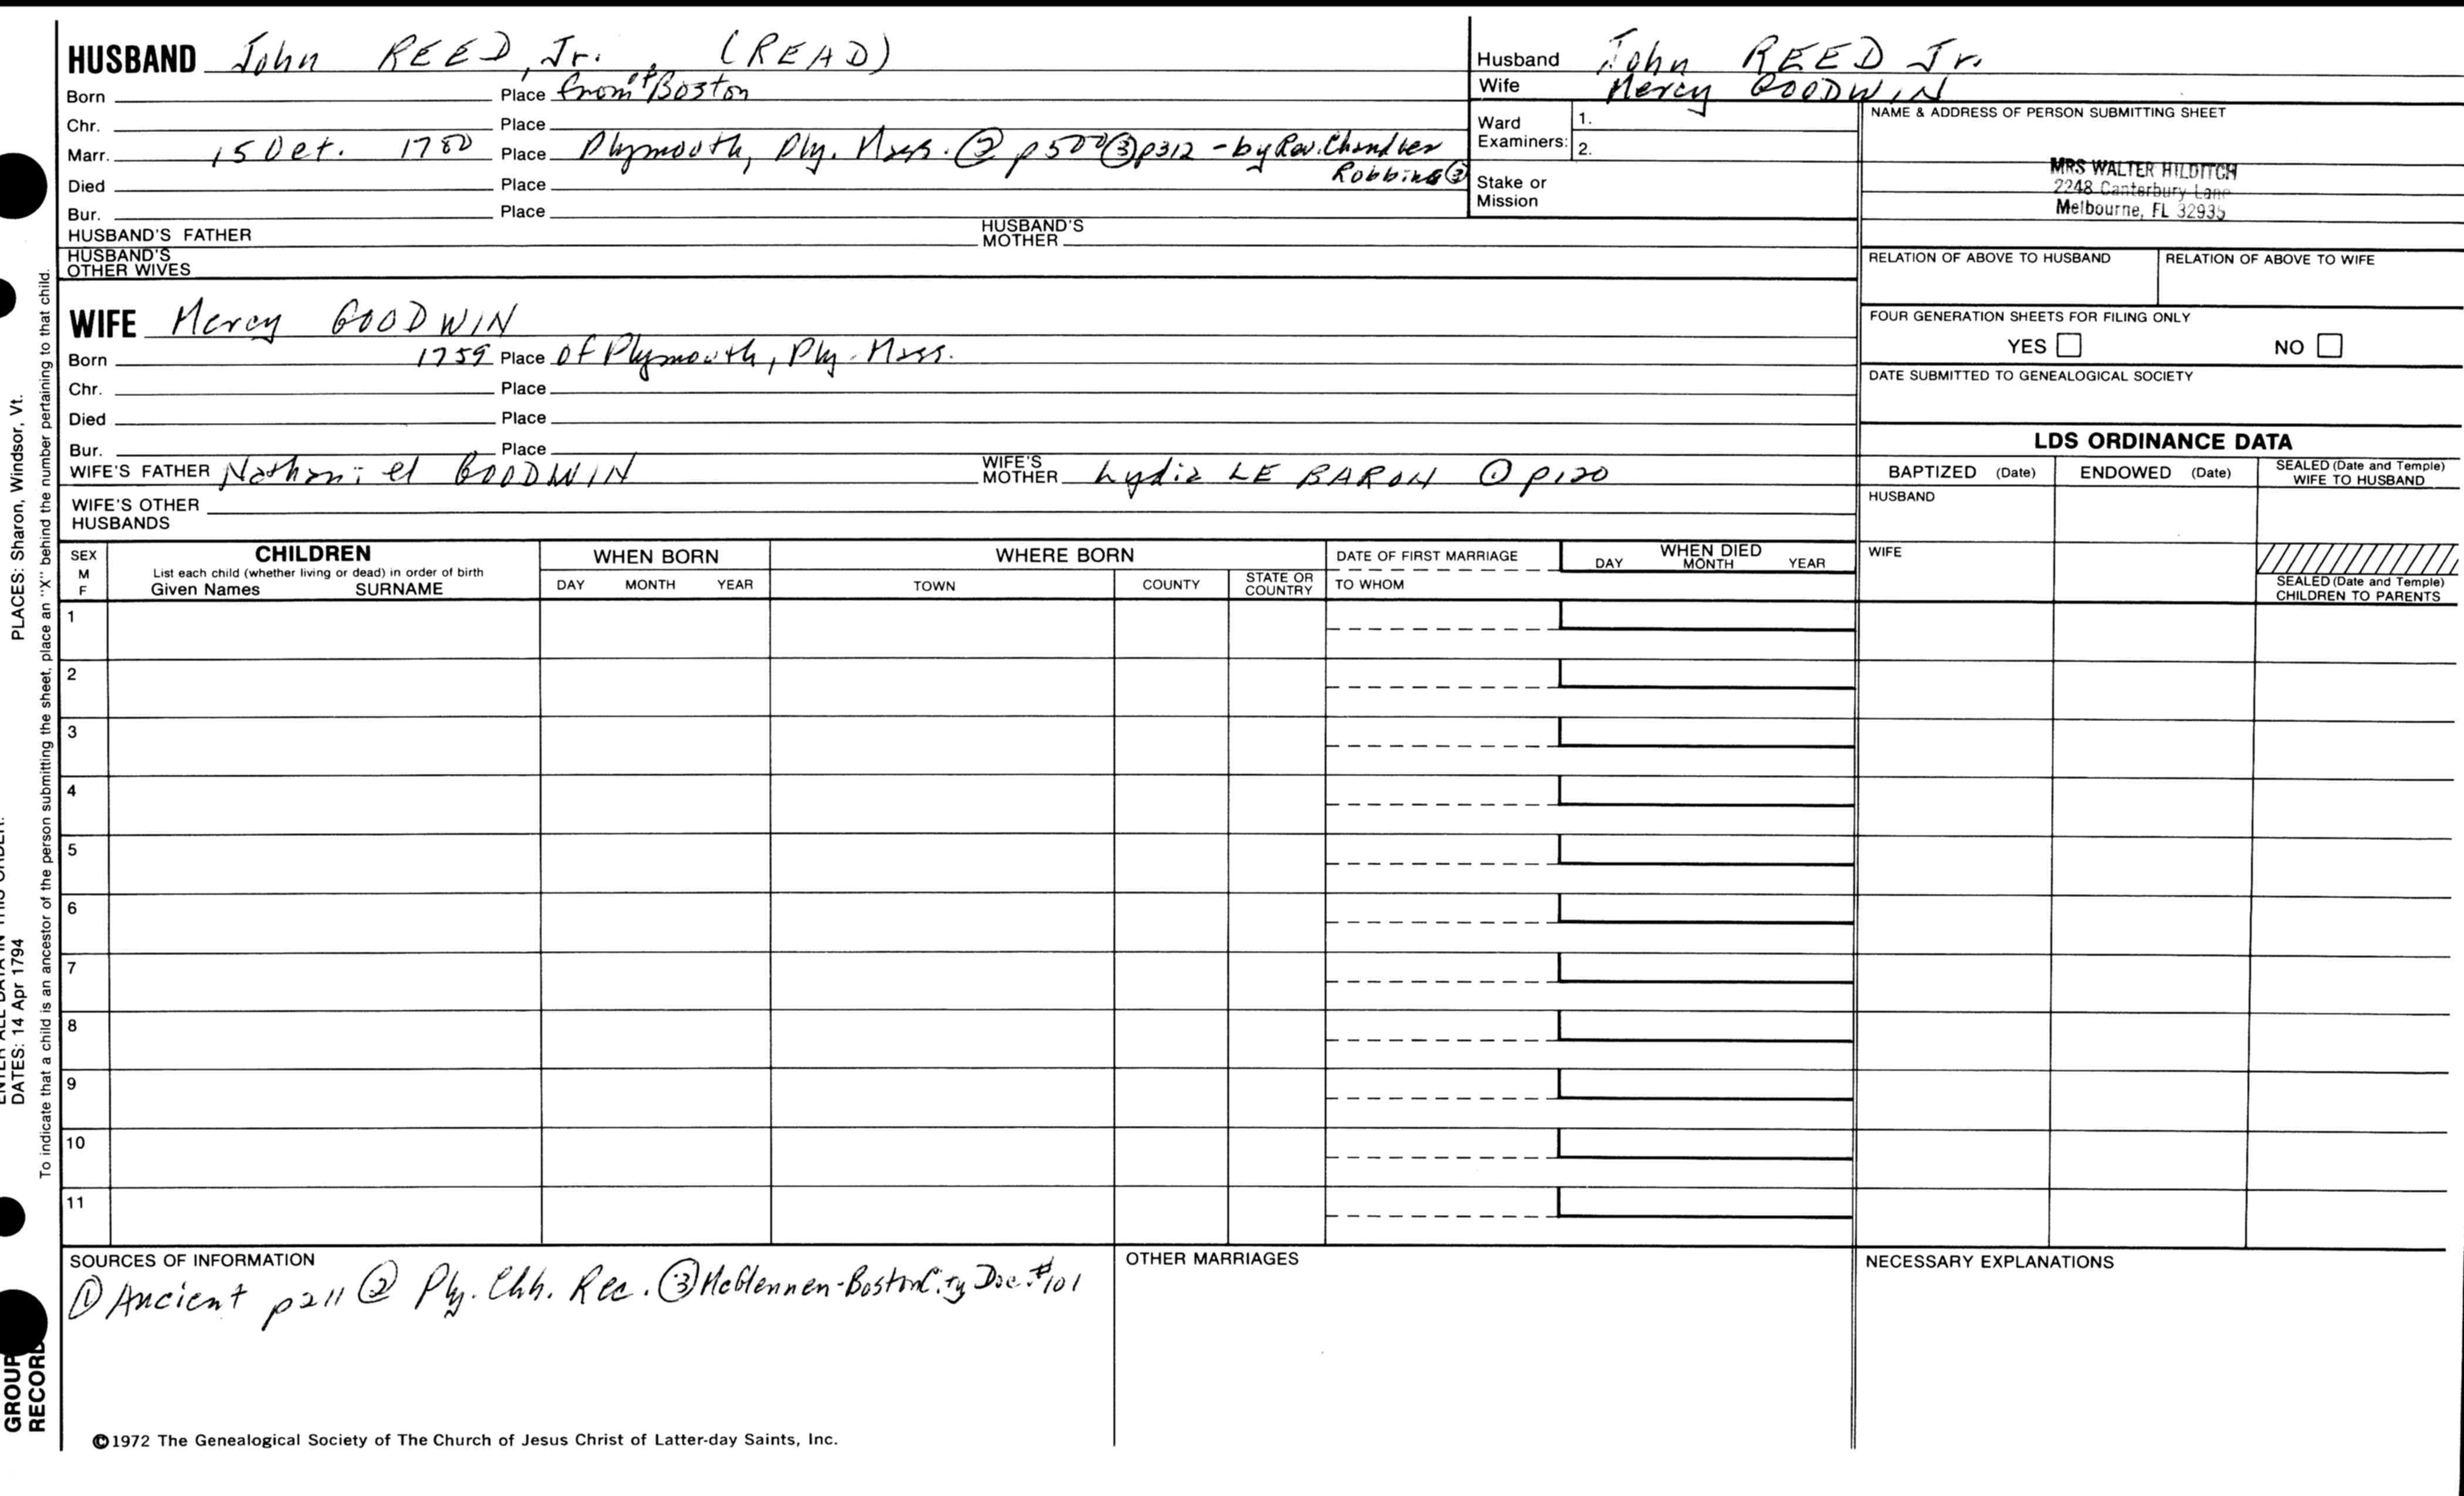 HUSBAND John REED, Jr. (READ)
Born Place from of Boston
Chr. Place
Marr. 15 Oct. 1780 Place Plymouth, Ply. Mass. ② p500 ③ p312 - by Rev. Chandler
Robbins ③
Died Place
Bur. Place
HUSBAND'S FATHER HUSBAND'S MOTHER
HUSBAND'S OTHER WIVES
Husband John REED Jr.
Wife Mercy GOODWIN
Ward Examiners: 1.
2.
Stake or Mission
NAME & ADDRESS OF PERSON SUBMITTING SHEET
MRS WALTER HILDITCH
2248 Canterbury Lane
Melbourne, FL 32935
RELATION OF ABOVE TO HUSBAND RELATION OF ABOVE TO WIFE
FOUR GENERATION SHEETS FOR FILING ONLY
YES NO
DATE SUBMITTED TO GENEALOGICAL SOCIETY
WIFE Mercy GOODWIN
Born 1759 Place Of Plymouth, Ply. Mass.
Chr. Place
Died Place
Bur. Place
WIFE'S FATHER Nathaniel GOODWIN WIFE'S MOTHER Lydia LE BARON ① p120
WIFE'S OTHER HUSBANDS
LDS ORDINANCE DATA
BAPTIZED (Date) ENDOWED (Date) SEALED (Date and Temple) WIFE TO HUSBAND
HUSBAND
WIFE
SEALED (Date and Temple) CHILDREN TO PARENTS
SEX M F
CHILDREN
List each child (whether living or dead) in order of birth
Given Names SURNAME
WHEN BORN
DAY MONTH YEAR
WHERE BORN
TOWN COUNTY STATE OR COUNTRY
DATE OF FIRST MARRIAGE
TO WHOM
WHEN DIED
DAY MONTH YEAR
1
2
3
4
5
6
7
8
9
10
11
SOURCES OF INFORMATION
① Ancient p211 ② Ply. Chh. Rec. ③ McGlennen-Boston City Doc. #101
OTHER MARRIAGES
NECESSARY EXPLANATIONS
©1972 The Genealogical Society of The Church of Jesus Christ of Latter-day Saints, Inc.
PLACES: Sharon, Windsor, Vt.
DATES: 14 Apr 1794
To indicate that a child is an ancestor of the person submitting the sheet, place an "X" behind the number pertaining to that child.
GROUP
RECORD